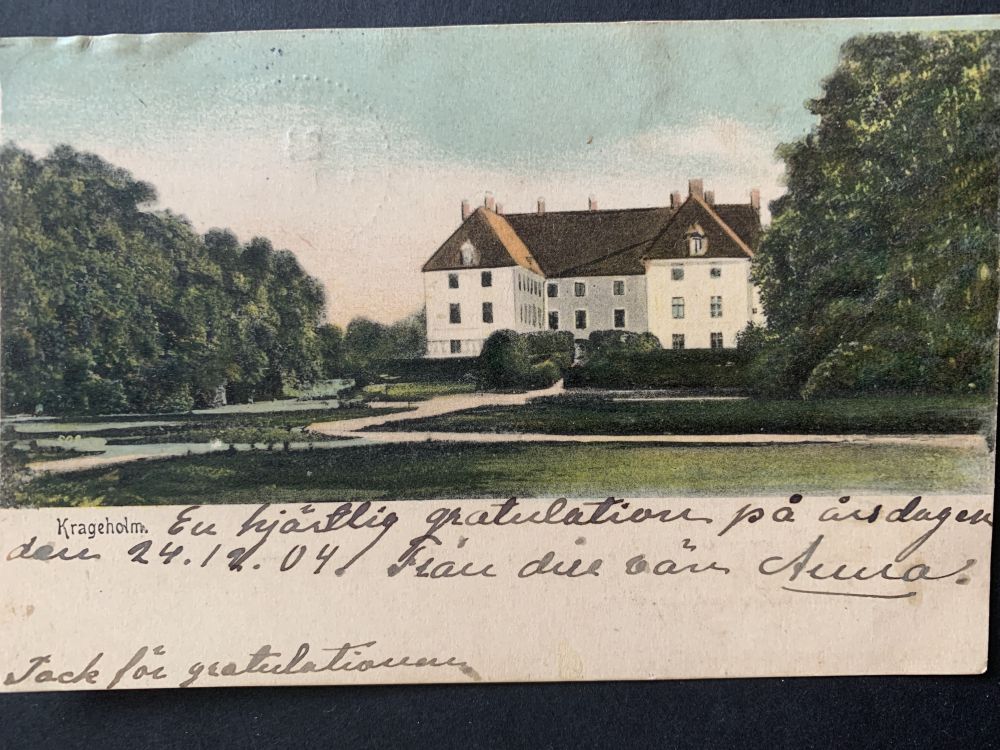 Krageholm. En hjärtlig gratulation på årsdagen
den 24.12.04. Från din vän Anna.
Tack för gratulationen